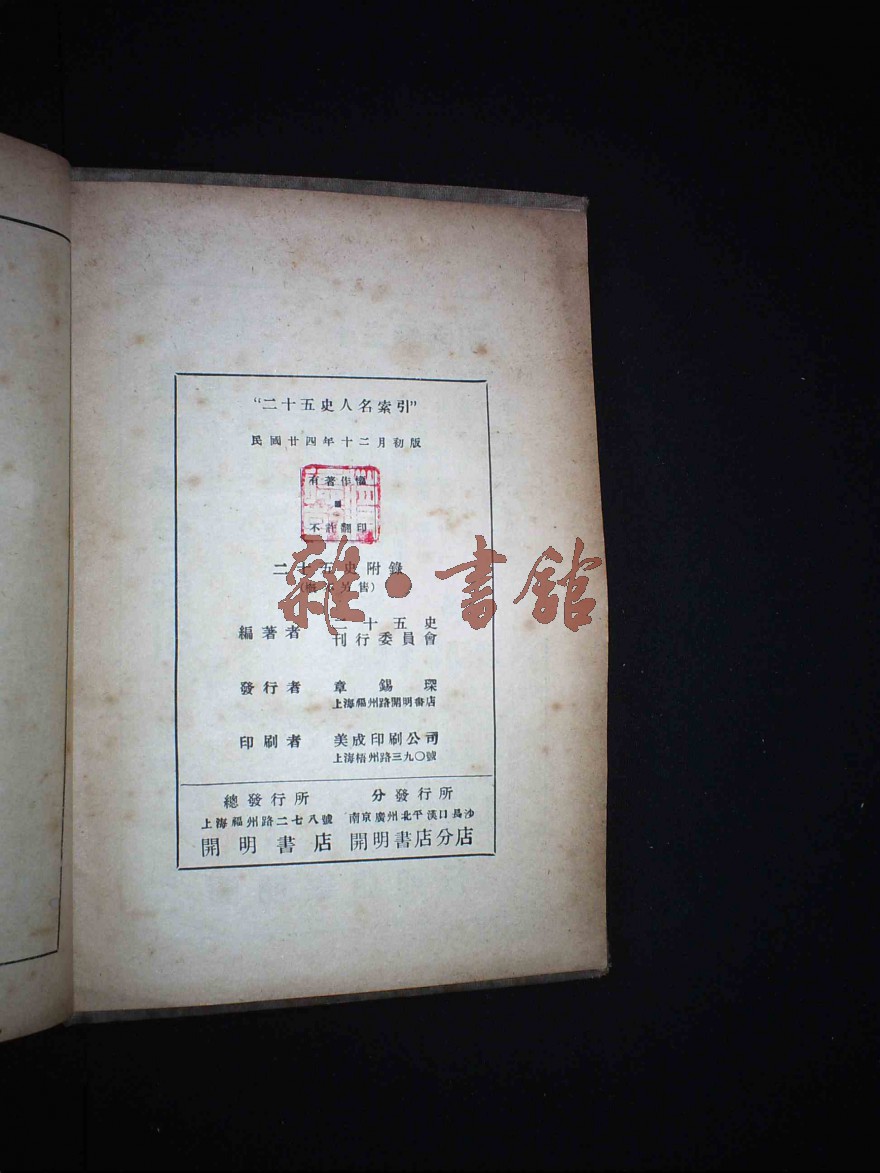 “二十五史人名索引”
民國廿四年十二月初版
有著作權
不許翻印
二十五史附錄
售）
編著者 二十五史
刊行委員會
發行者 章錫琛
上海福州路開明書店
印刷者 美成印刷公司
上海梧州路三九〇號
總發行所 分發行所
上海福州路二七八號 南京廣州北平漢口長沙
開明書店 開明書店分店
雜·書館